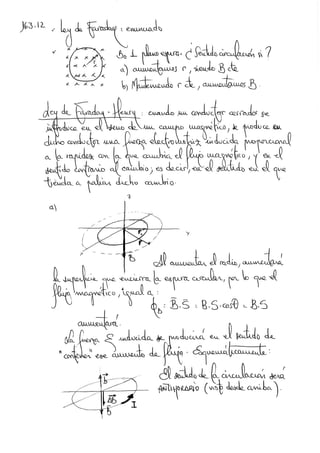 J63.12 - Ley de Faraday: enunciado
B⃗ ⊥ plano espira. ¿Sentido circulación si?
a) aumentamos r, siendo B cte
b) Manteniendo r cte, aumentamos B.
Ley de Faraday-Henry: cuando un conductor cerrado se
introduce en el seno de un campo magnético, se produce en
dicho conductor una fuerza electromotriz inducida proporcional
a la rapidez con la que cambia el flujo magnético, y en el
sentido contrario al cambio, es decir, en el sentido en el que
tienda a paliar dicho cambio.
a)
z
Y
B
Al aumentar el radio, aumentará
la superficie que encierra la espira circular, por lo que el
flujo magnético, igual a:
ϕB = B⃗·S⃗ = B·S·cosθ = B·S
aumentará.
La fuerza ε inducida se producirá en el sentido de
"contener" ese aumento de flujo. Esquemáticamente:
El sentido de la circulación será
ANTIHORARIO (visto desde arriba).
I
aumento